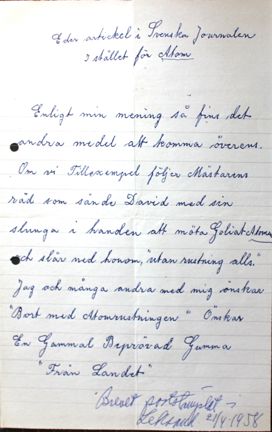 Eder artickel i Svenska Journalen
I stället för Atom
Enligt min mening så fins det
andra medel att komma överens.
Om vi Tillexempel följer Mästarens
råd som sände David med sin
slunga i handen att möta Goliat Atomen
och slår ned honom, "utan rustning alls."
Jag och många andra med mig önskar
"Bort med Atomrustningen" Önskar
En Gammal Beprövad Gumma
"Från Landet"
Brevet poststämplat i
21/4 - 1958